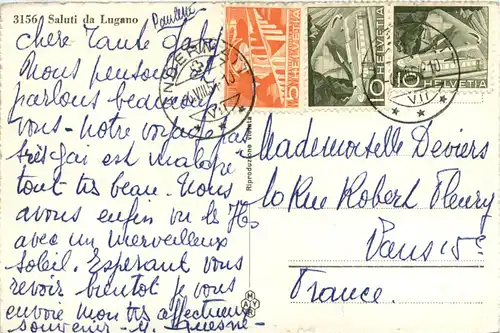 3156 Saluti da Lugano
Chère Tante
Nous pensons et
parlons beaucoup
vous - notre voyage pas
très gai est malgré
tout très beau. Nous
avons enfin vu le
avec un merveilleux
soleil. Esperant vous
revoir bientôt je vous
envoie mon très affectueux
souvenir -
HELVETIA
5
HELVETIA
10
HELVETIA
10
Mademoiselle Deviers
10 Rue Robert Fleury
Paris 15e
France.
Riproduzione vietata
MAYR